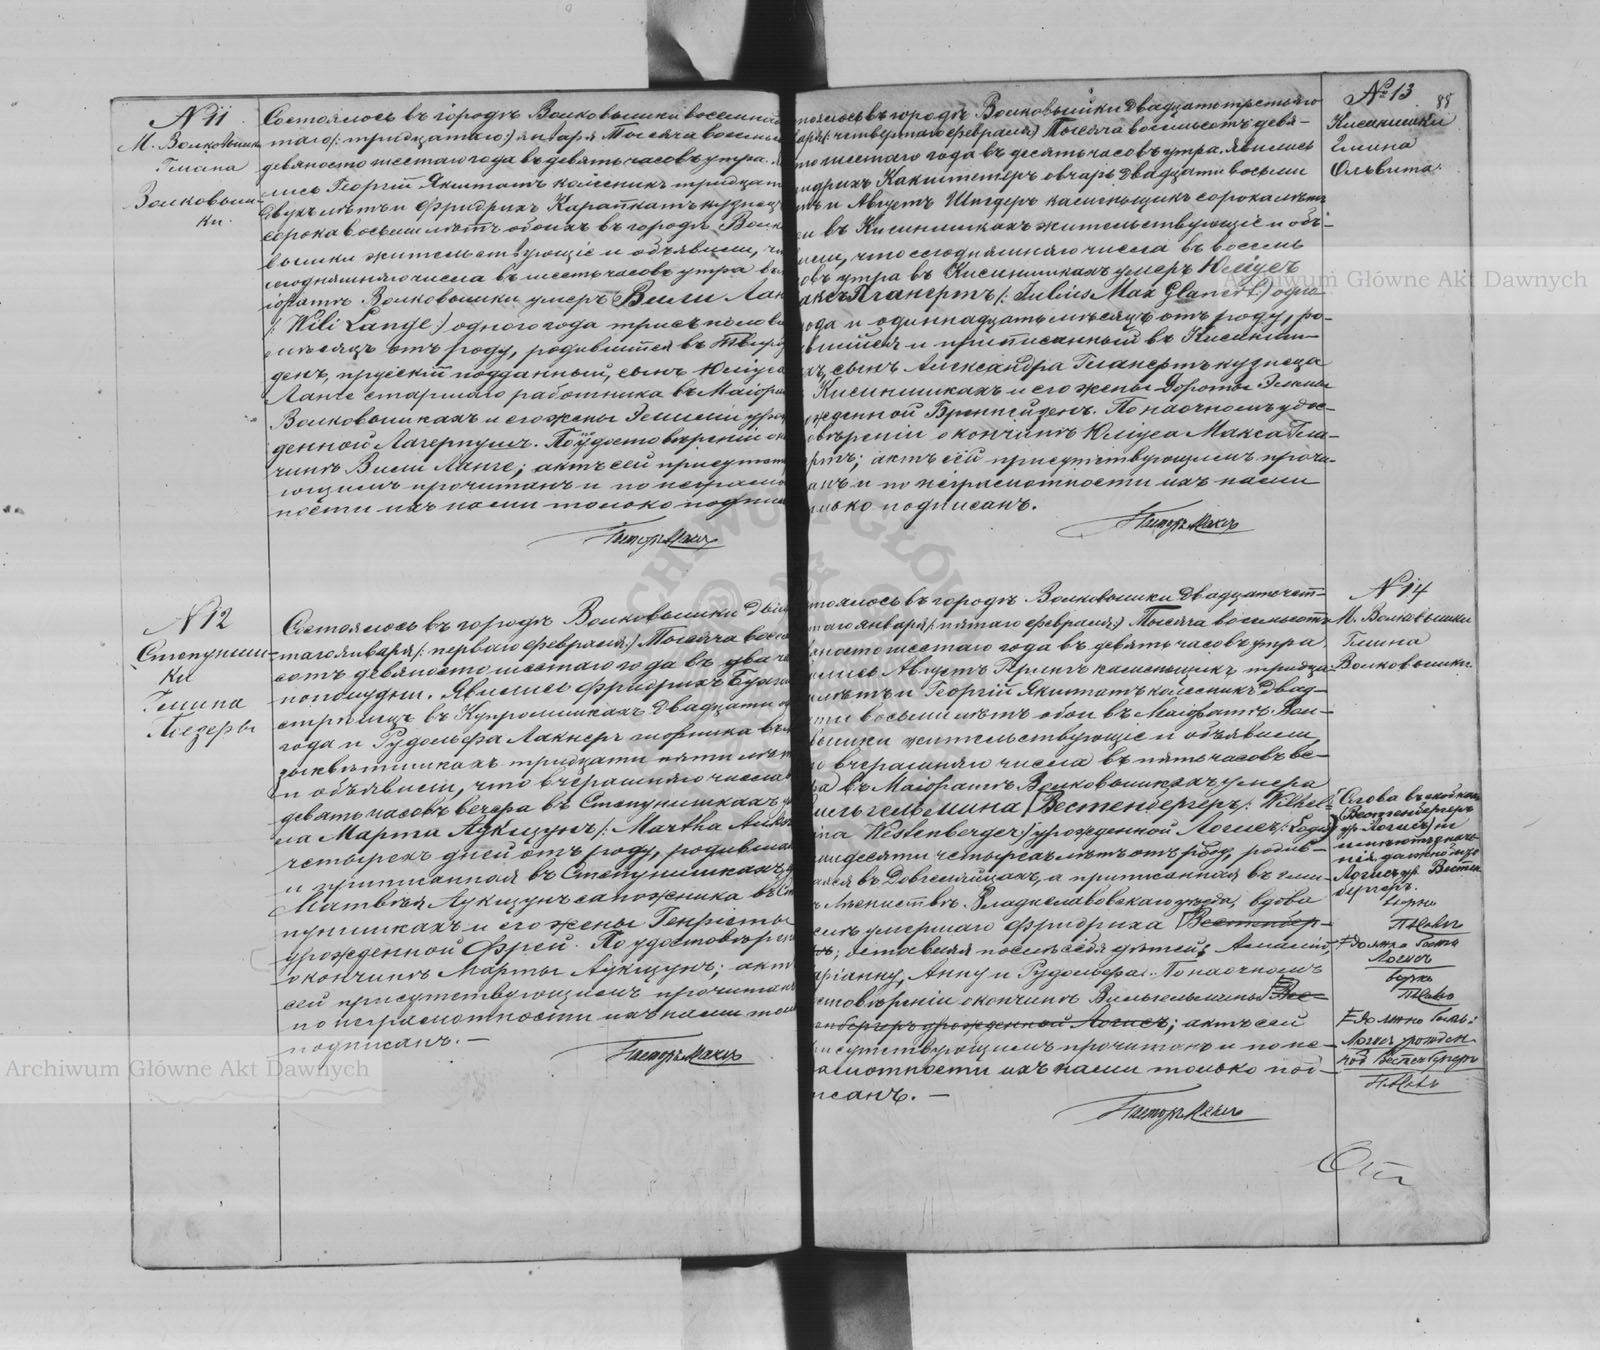 № 11
М. Волковышки
Гмина
Волковыш-
ки.
Состоялось въ городѣ Волковышки восемнад
таго /: тридцатаго :/ января Тысяча восемьсотъ
девяносто шестаго года въ девять часовъ утра.
лись Георгій Якштатъ колесникъ тридцати
двухъ лѣтъ и Фридрихъ Карапкатъ кузнецъ
сорока восьми лѣтъ обоихъ въ городѣ Волко
вышки жительствующіе и объявили, что
сегодняшняго числа въ шесть часовъ утра въ
іоратѣ Волковышки умеръ Вили Ланге
/: Wili Lange :/ одного года трисъ полови
мѣсяцъ отъ роду, родившійся въ
денъ, прусскій подданный, сынъ Юліуса
Ланге старшаго работника въ Маіоратѣ
Волковышкахъ и его жены Эмиліи урож
денной Лагерпушъ. По удостовѣреніи о кон
чинѣ Вили Ланге; актъ сей присутств
ющимъ прочитанъ и по неграмот
ности ихъ нами только подписа
Пасторъ
№ 12
Степуниш-
ки
Гмина
Пезеры
Состоялось въ городѣ Волковышки двад
таго января /: перваго февраля :/ Тысяча восемь
сотъ девяносто шестаго года въ два часа
пополудни. Явились Фридрихъ
въ Купромишкахъ двадцати
года и Рудольфъ Лакнеръ
тридцати пяти лѣтъ
и объявили, что вчерашняго числа въ
девять часовъ вечера въ Степунишкахъ у
ла Марта Лукшунъ /: Martha
четырехъ дней отъ роду, родившая
и приписанная въ Степунишкахъ,
Матвѣя Лукшунъ сапожника въ Сте
пунишкахъ и его жены Генріеты
урожденной Фрей. По удостовѣрен
о кончинѣ Марты Лукшунъ; актъ
сей присутствующимъ прочитанъ
по неграмотности ихъ нами толь
подписанъ. —
Пасторъ
№ 13
88
Кисинишки
Гмина
Ольвита.
тоялось въ городѣ Волковышки двадцать третьяго
варя /: четвертаго февраля :/ Тысяча восемьсотъ девя-
то шестаго года въ десять часовъ утра. Явились
ндрихъ Какштетеръ овчаръ двадцати восьми
тъ и Августъ Шнедеръ каменьщикъ сорока лѣтъ
и въ Кисинишкахъ жительствующіе и объ-
или, что сегодняшняго числа въ восемь
овъ утра въ Кисинишкахъ умеръ Юліусъ
аксъ Гланертъ /: Julius Max Glanert :/ одно
года и одиннадцать мѣсяцъ отъ роду, ро-
вшійся и приписанный въ Кисиниш-
хъ, сынъ Александра Гланертъ кузнеца
Кисинишкахъ и его жены Дороты Эмиліи
ожденной Бреннейденъ. По наочномъ удос-
овѣреніи о кончинѣ Юліуса Макса Гла-
ертъ; актъ сей присутствующимъ прочи-
анъ и по неграмотности ихъ нами
олько подписанъ.
Пасторъ
№ 14
М. Волковышки
Гмина
Волковышки.
тоялось въ городѣ Волковышки двадцать чет-
таго января /: пятаго февраля :/ Тысяча восемьсотъ
вяносто шестаго года въ девять часовъ утра.
вились Августъ каменьщикъ тридца-
лѣтъ и Георгій Якштатъ колесникъ двад-
ати восьми лѣтъ обои въ Маіоратѣ Вол-
вышки жительствующіе и объявили,
о вчерашняго числа въ пять часовъ ве-
ра въ Маіоратѣ Волковышкахъ умера
ильгельмина [Вестенбергеръ /: Wilhel-
ina Westenberger :/ урожденной Логисъ /: Logis]
мидесяти четырехъ лѣтъ отъ роду, родив-
аяся въ Довгеляйцахъ, а приписанная въ гми-
ѣ Лѣкиствѣ Владиславовскаго уѣзда, вдова
слѣ умершаго Фридриха [Вестенбер-
ъ; оставляя послѣ себя дѣтей: Амалію,
аріанну, Анну и Рудольфа. По наочномъ
стовѣреніи о кончинѣ Вильгельмины Вес-
енбергеръ урожденной Логисъ; актъ сей
рисутствующимъ прочитанъ и по не-
амотности ихъ нами только под-
исанъ. —
Пасторъ
Слова въ скобкахъ
(Вестенбергеръ
ур. Логисъ)
Логисъ ур. Вестен
бергеръ.
вѣрно
должно быть
Логисъ
вѣрно
должно быть:
Логисъ урожден
ной Вестенбергеръ
Archiwum Główne Akt Dawnych
Archiwum Główne Akt Dawnych